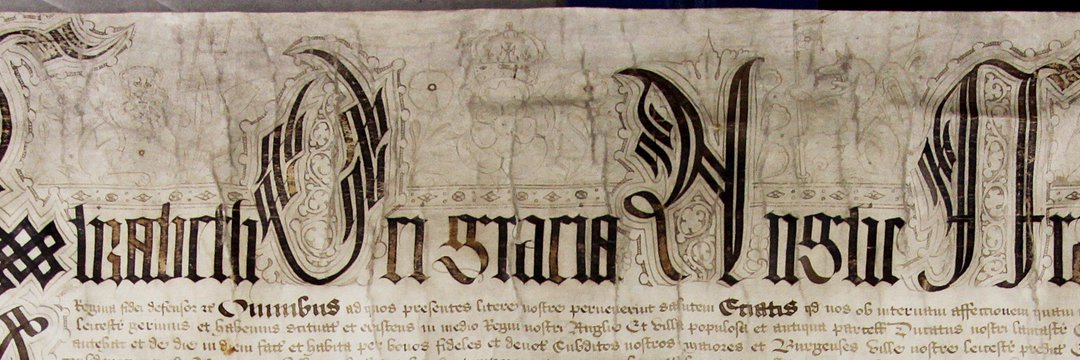 lizabeth Dei Gracia Anglie Fra
Regina fidei defensor &c Omnibus ad quos presentes litere nostre pervenerint salutem Sciatis qd nos ob internam affectionem quam
leicestr gerimus et habemus scituat et existens in medio Regni nostri Anglie Et villa populosa et antiqua parcell Ducatus nostri lancastr
antehac et de die in diem fact et habita per bonos fideles et devot Subditos nostros maiores et Burgenses ville nostre leicestr predict